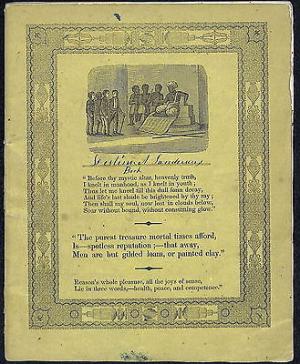 Book
"Before thy mystic altar, heavenly truth,
I kneel in manhood, as I knelt in youth;
Thus let me kneel till this dull form decay,
And life's last shade be brightened by thy ray;
Then shall my soul, now lost in clouds below,
Soar without bound, without consuming glow."
"The purest treasure mortal times afford,
Is—spotless reputation;—that away,
Men are but gilded loam, or painted clay."
Reason's whole pleasure, all the joys of sense,
Lie in three words,—health, peace, and competence."